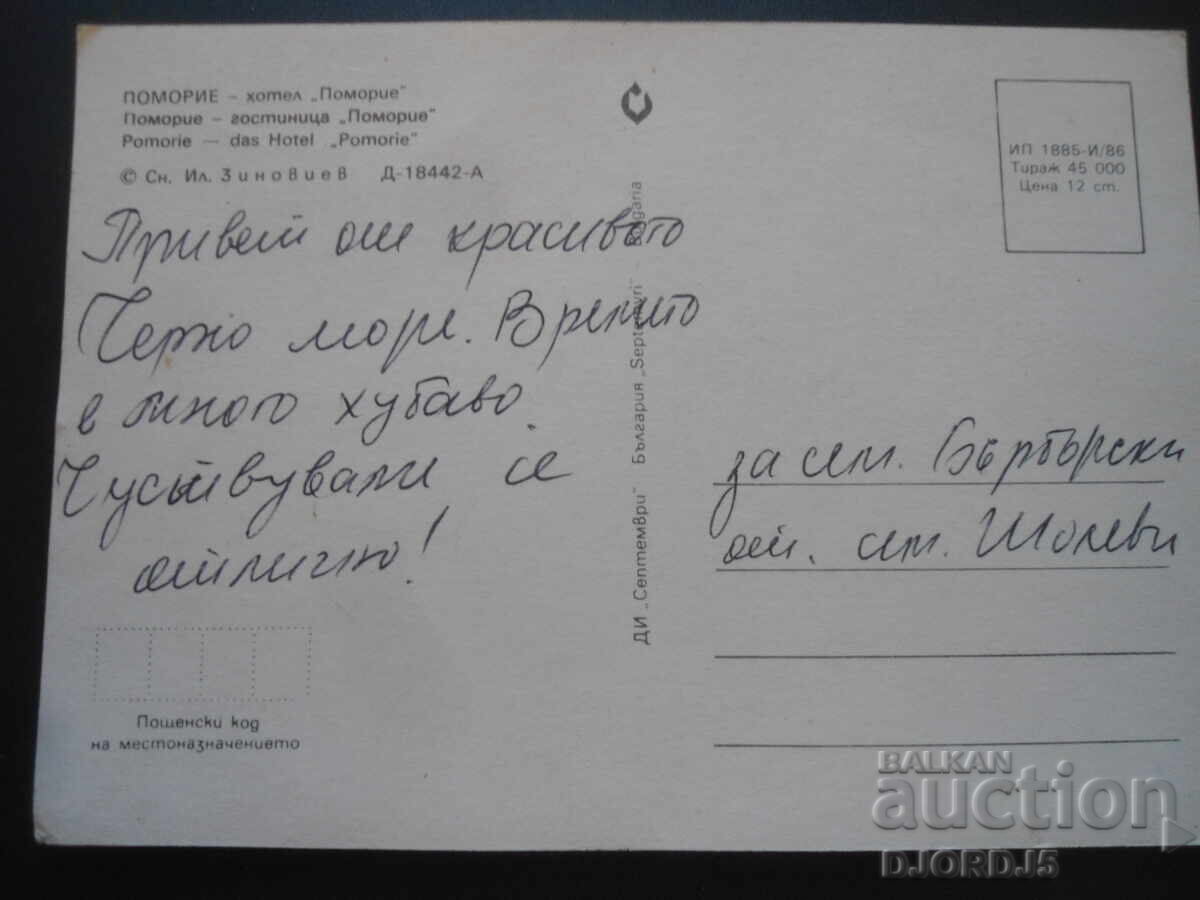 ПОМОРИЕ – хотел „Поморие"
Поморие – гостиница „Поморие"
Pomorie — das Hotel „Pomorie"
© Сн. Ил. Зиновиев Д-18442-А
Привет от красивото
Черно море. Времето
е много хубаво.
Чуствуваме се
отлично!
Пощенски код
на местоназначението
ДИ „Септември" България „Septemvri" – Bulgaria
ИП 1885-И/86
Тираж 45 000
Цена 12 ст.
за сем. Бърбърски
от. сем. Шолеви
BALKAN
auction
DJORDJ5